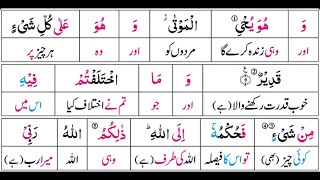 وَ هُوَ یُحْیِ الْمَوْتٰی وَ هُوَ عَلٰی كُلِّ شَیْءٍ
اور وہی زندہ کرے گا مردوں کو اور وہ ہر چیز پر
قَدِیْرٌ ﴿۹﴾ وَ مَا اخْتَلَفْتُمْ فِیْهِ
خوب قدرت رکھنے والا (ہے) اور جو تم نے اختلاف کیا اس میں
مِنْ شَیْءٍ فَحُكْمُهٗۤ اِلَی اللّٰهِ ؕ ذٰلِكُمُ اللّٰهُ رَبِّیْ
کوئی چیز (بھی) تو اس کا فیصلہ اللہ کی طرف (ہے) وہی اللہ میرا رب (ہے)